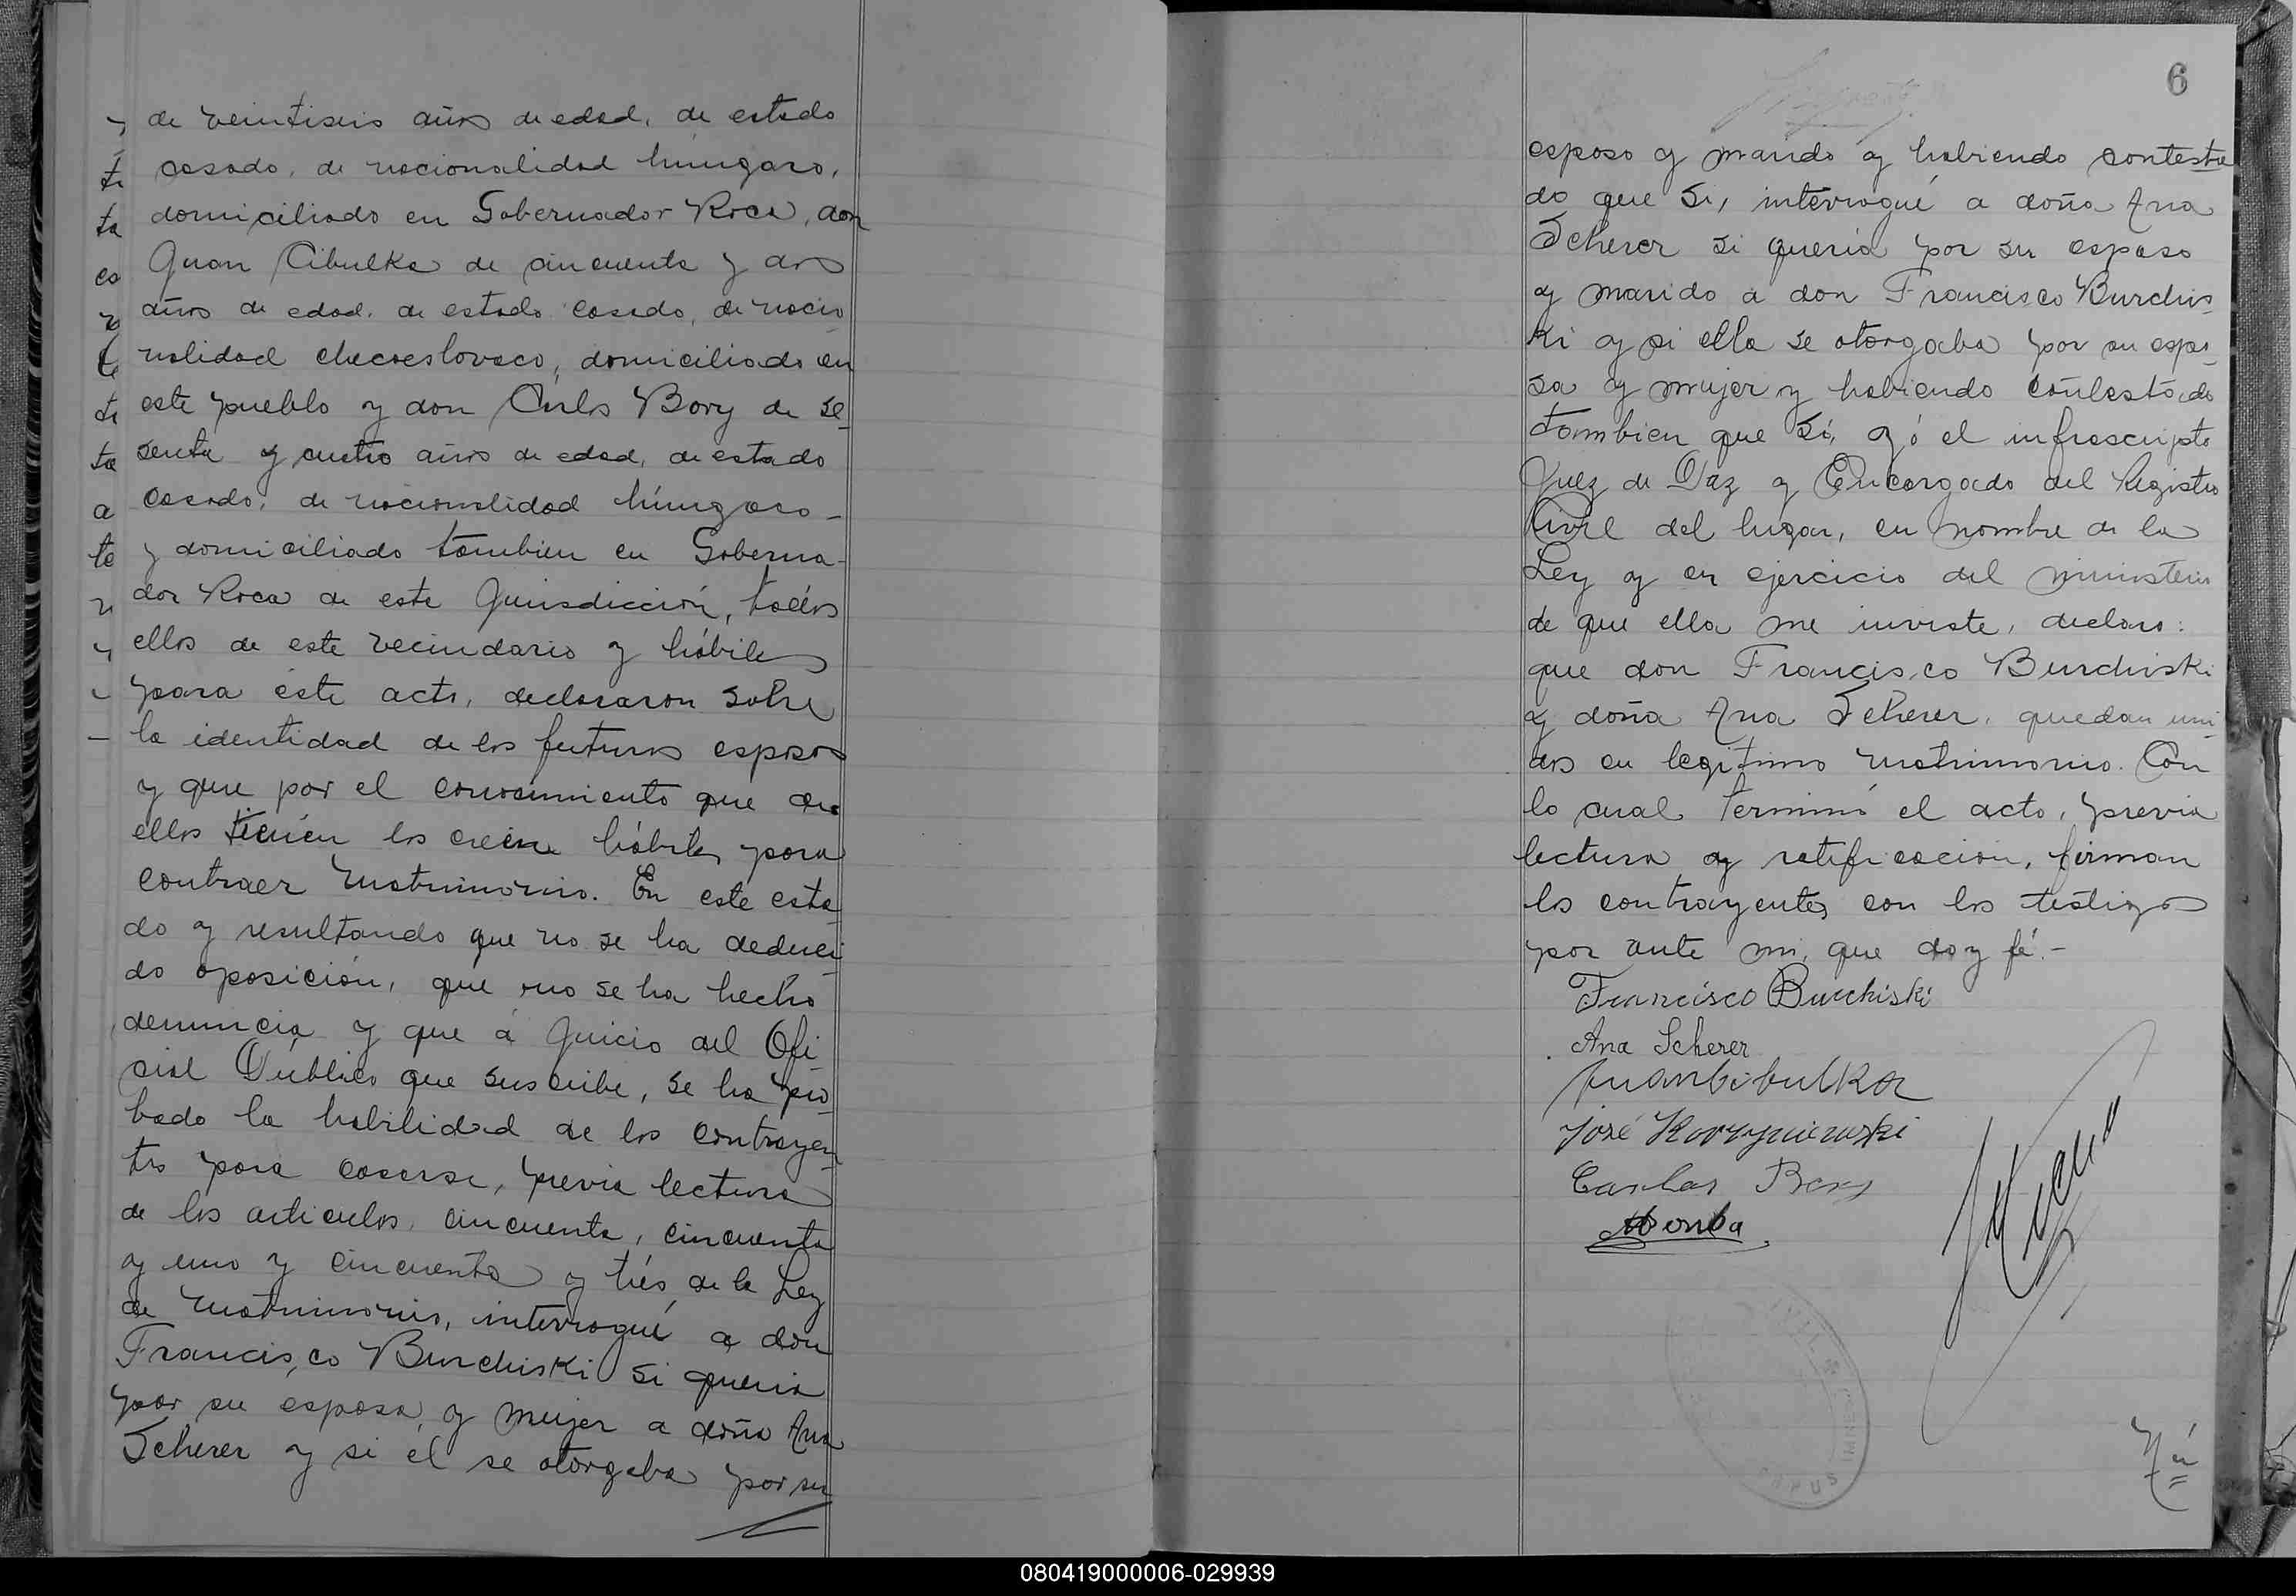 de veintiseis años de edad, de estado
casado, de nacionalidad húngaro,
domiciliado en Gobernador Roca, don
Juan Cibulka de cincuenta y dos
años de edad, de estado casado, de nacio
nalidad checoeslovaco, domiciliado en
este pueblo y don Carlos Bory de se
senta y cuatro años de edad, de estado
casado, de nacionalidad húngaro -
y domiciliado tambien en Goberna-
dor Roca de este Jurisdicción, todos
ellos de este vecindario y hábiles
para este acto, declararon sobre
la identidad de los futuros esposos
y que por el conosimiento que de
ellos tienen los creen hábiles para
contraer matrimonio. En este esta
do y resultando que no se ha deduci
do oposición, que no se ha hecho
denuncia y que á juicio del Ofi
cial Público que suscribe, se ha pro
bado la habilidad de los contrayen
tes para casarse, previa lectura
de los articulos, cincuenta, cincuenta
y uno y cincuenta y trés de la Ley
de matrimonio, interrogué a don
Francisco Burchiski si queria
por su esposa y mujer a doña Ana
Scherer y si él se otorgaba por su
6
esposo y marido y habiendo contesta
do que si, interrogué a doña Ana
Scherer si queria por su esposo
y marido a don Francisco Burchis
ki y si ella se otorgaba por su espo
sa y mujer y habiendo contestado
tambien que sí, yó el infrascripto
Juez de Paz y Encargado del Registro
Civil del lugar, en nombre de la
Ley y en ejercicio del ministerio
de que ella me inviste, declaro:
que don Francisco Burchiski
y doña Ana Scherer, quedan uni
dos en legitimo matrimonio. Con
lo cual terminó el acto, previa
lectura y ratificación, firman
los contrayentes con los testigos
por ante mi, que doy fé.-
Francisco Burchiski
Ana Scherer
Juan Cibulka
José
Carlos Bory
080419000006-029939